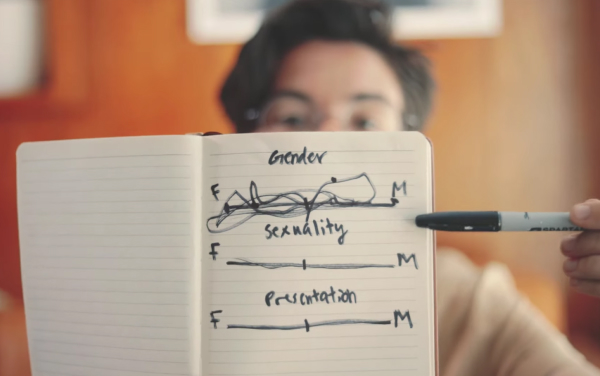 Gender
F M
sexuality
F M
Presentation
F M